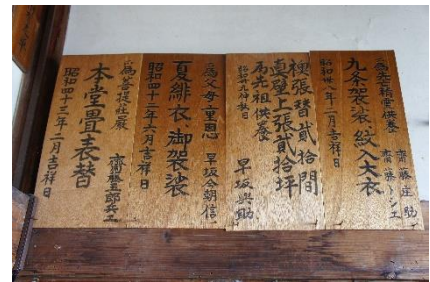 為先祖霊供養 齋藤庄助
齋藤トシエ
九条袈裟紋入大衣
昭和卅八年一月吉祥日
張替貳拾間
真壁上張貳拾坪
為先祖供養 早坂與助
昭和卅九年秋日
為父母重恩 早坂今朝信
夏緋衣御袈裟
昭和四十二年六月吉祥日
為菩提荘厳 齋藤五郎兵エ
本堂畳表替
昭和四十三年十二月吉祥日